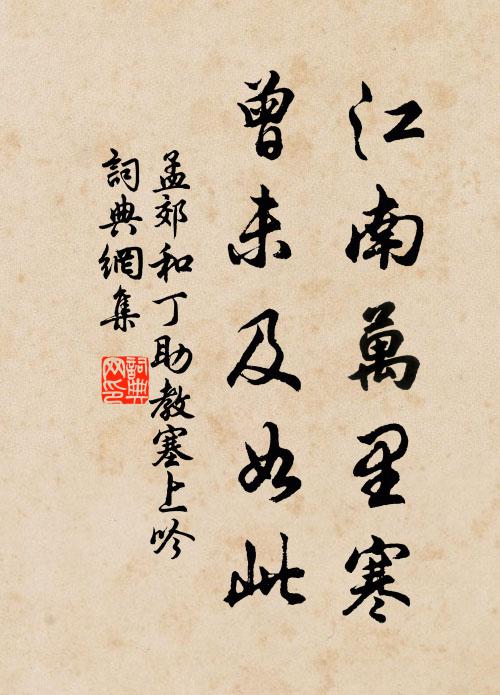 江南萬里寒
曾未及如此
孟郊和丁助教塞上吟
詞典網集
詞典網印